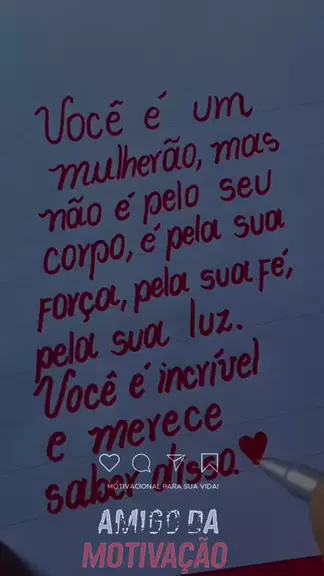 Você é um
mulherão, mas
não é pelo seu
corpo, é pela sua
força, pela sua fé,
pela sua luz.
Você é incrível
e merece
saber disso.
MOTIVACIONAL PARA SUA VIDA!
AMIGO DA
MOTIVAÇÃO